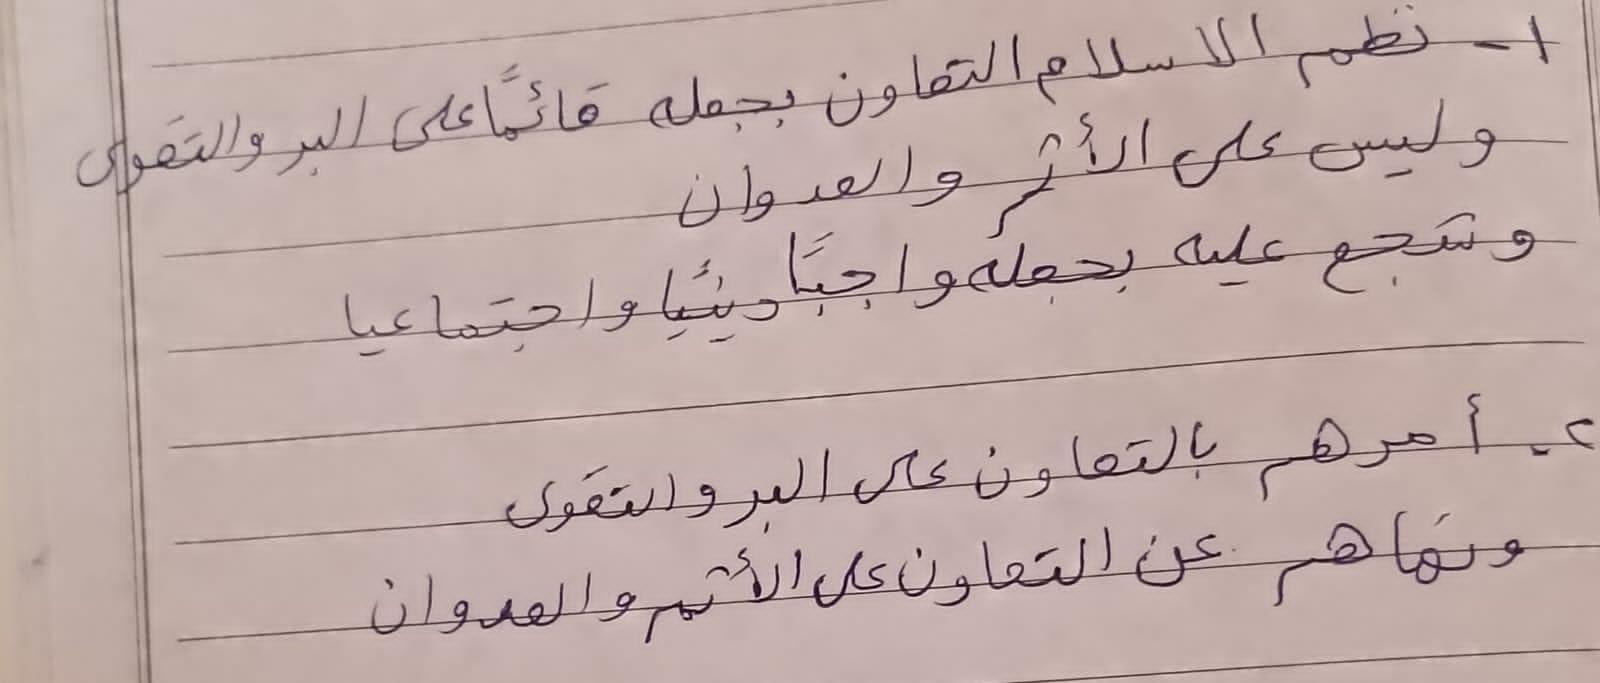 ١- نظم الاسلام التعاون بجعله قائمًا على البر والتقوى
وليس على الأثم والعدوان
وشجع عليه بجعله واجبًا دينيًا واجتماعيا
٢- أمرهم بالتعاون على البر والتقوى
ونهاهم عن التعاون على الأثم والعدوان